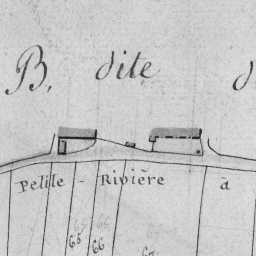 B. dite d
Petite - Rivière à
65
66
67